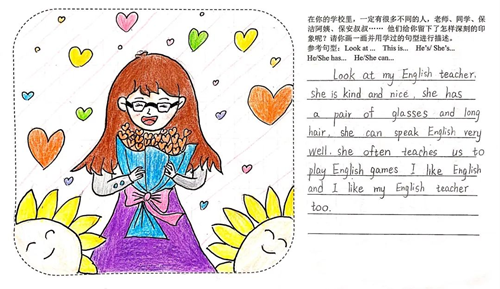 在你的学校里，一定有很多不同的人，老师、同学、保
洁阿姨、保安叔叔…… 他们给你留下了怎样深刻的印
象呢？请你画一画并用学过的句型进行描述。
参考句型：Look at ... This is... He's/ She's...
He/She has... He/She can...
Look at my English teacher.
she is kind and nice. she has
a pair of glasses and long
hair. she can speak English very
well. she often teaches us to
play English games I like English
and I like my English teacher
too.